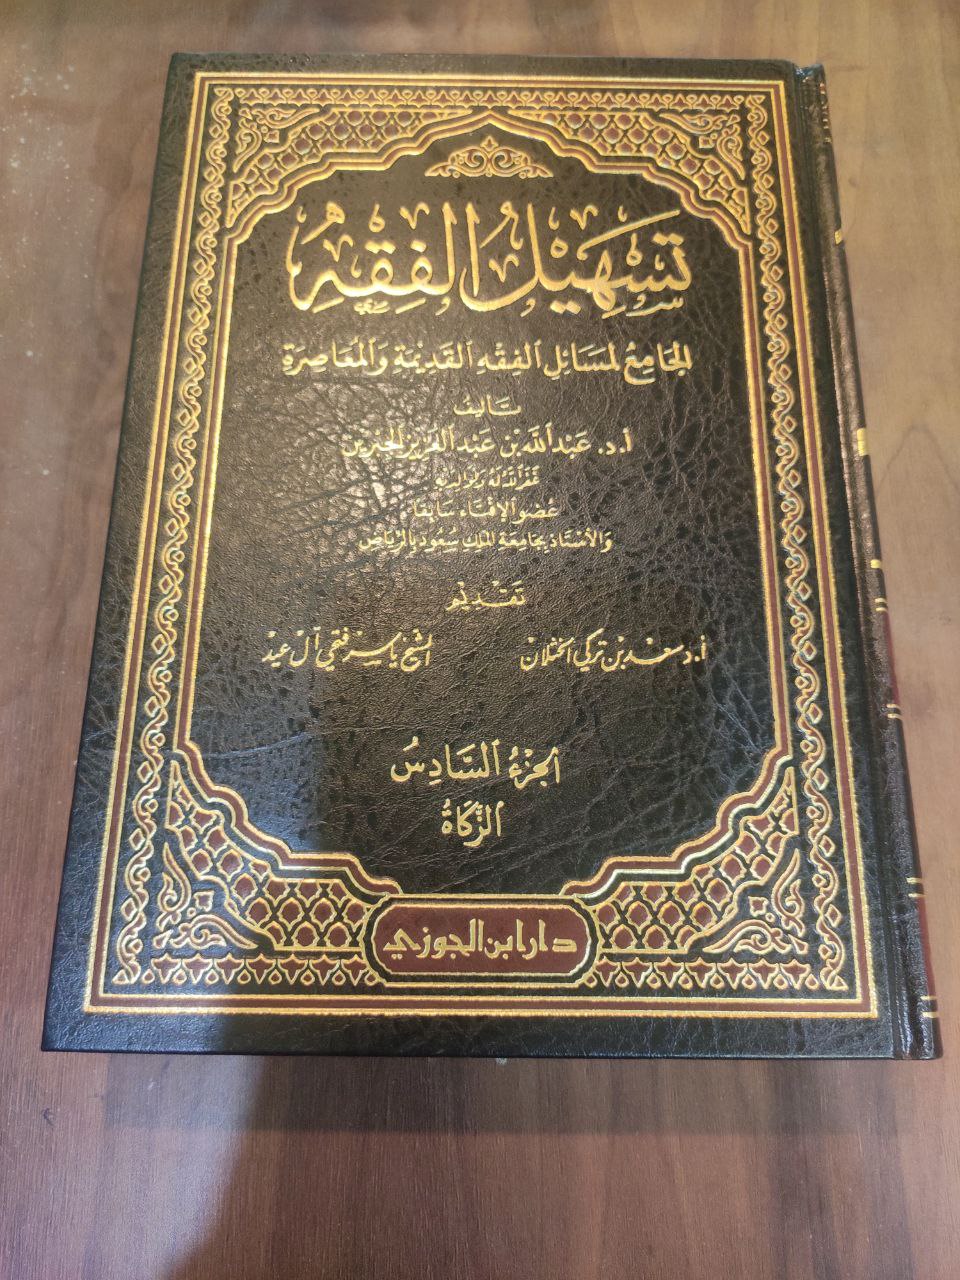 تسهيل الفقه
الجامع لمسائل الفقه القديمة والمعاصرة
تأليف
أ.د. عبد الله بن عبد العزيز الجبرين
غفر الله له ولوالديه
عضو الإفتاء سابقا
والأستاذ بجامعة الملك سعود بالرياض
تقديم
أ.د سعد بن تركي الخثلان الشيخ ياسر فقي آل عيد
الجزء السادس
الزكاة
دار ابن الجوزي